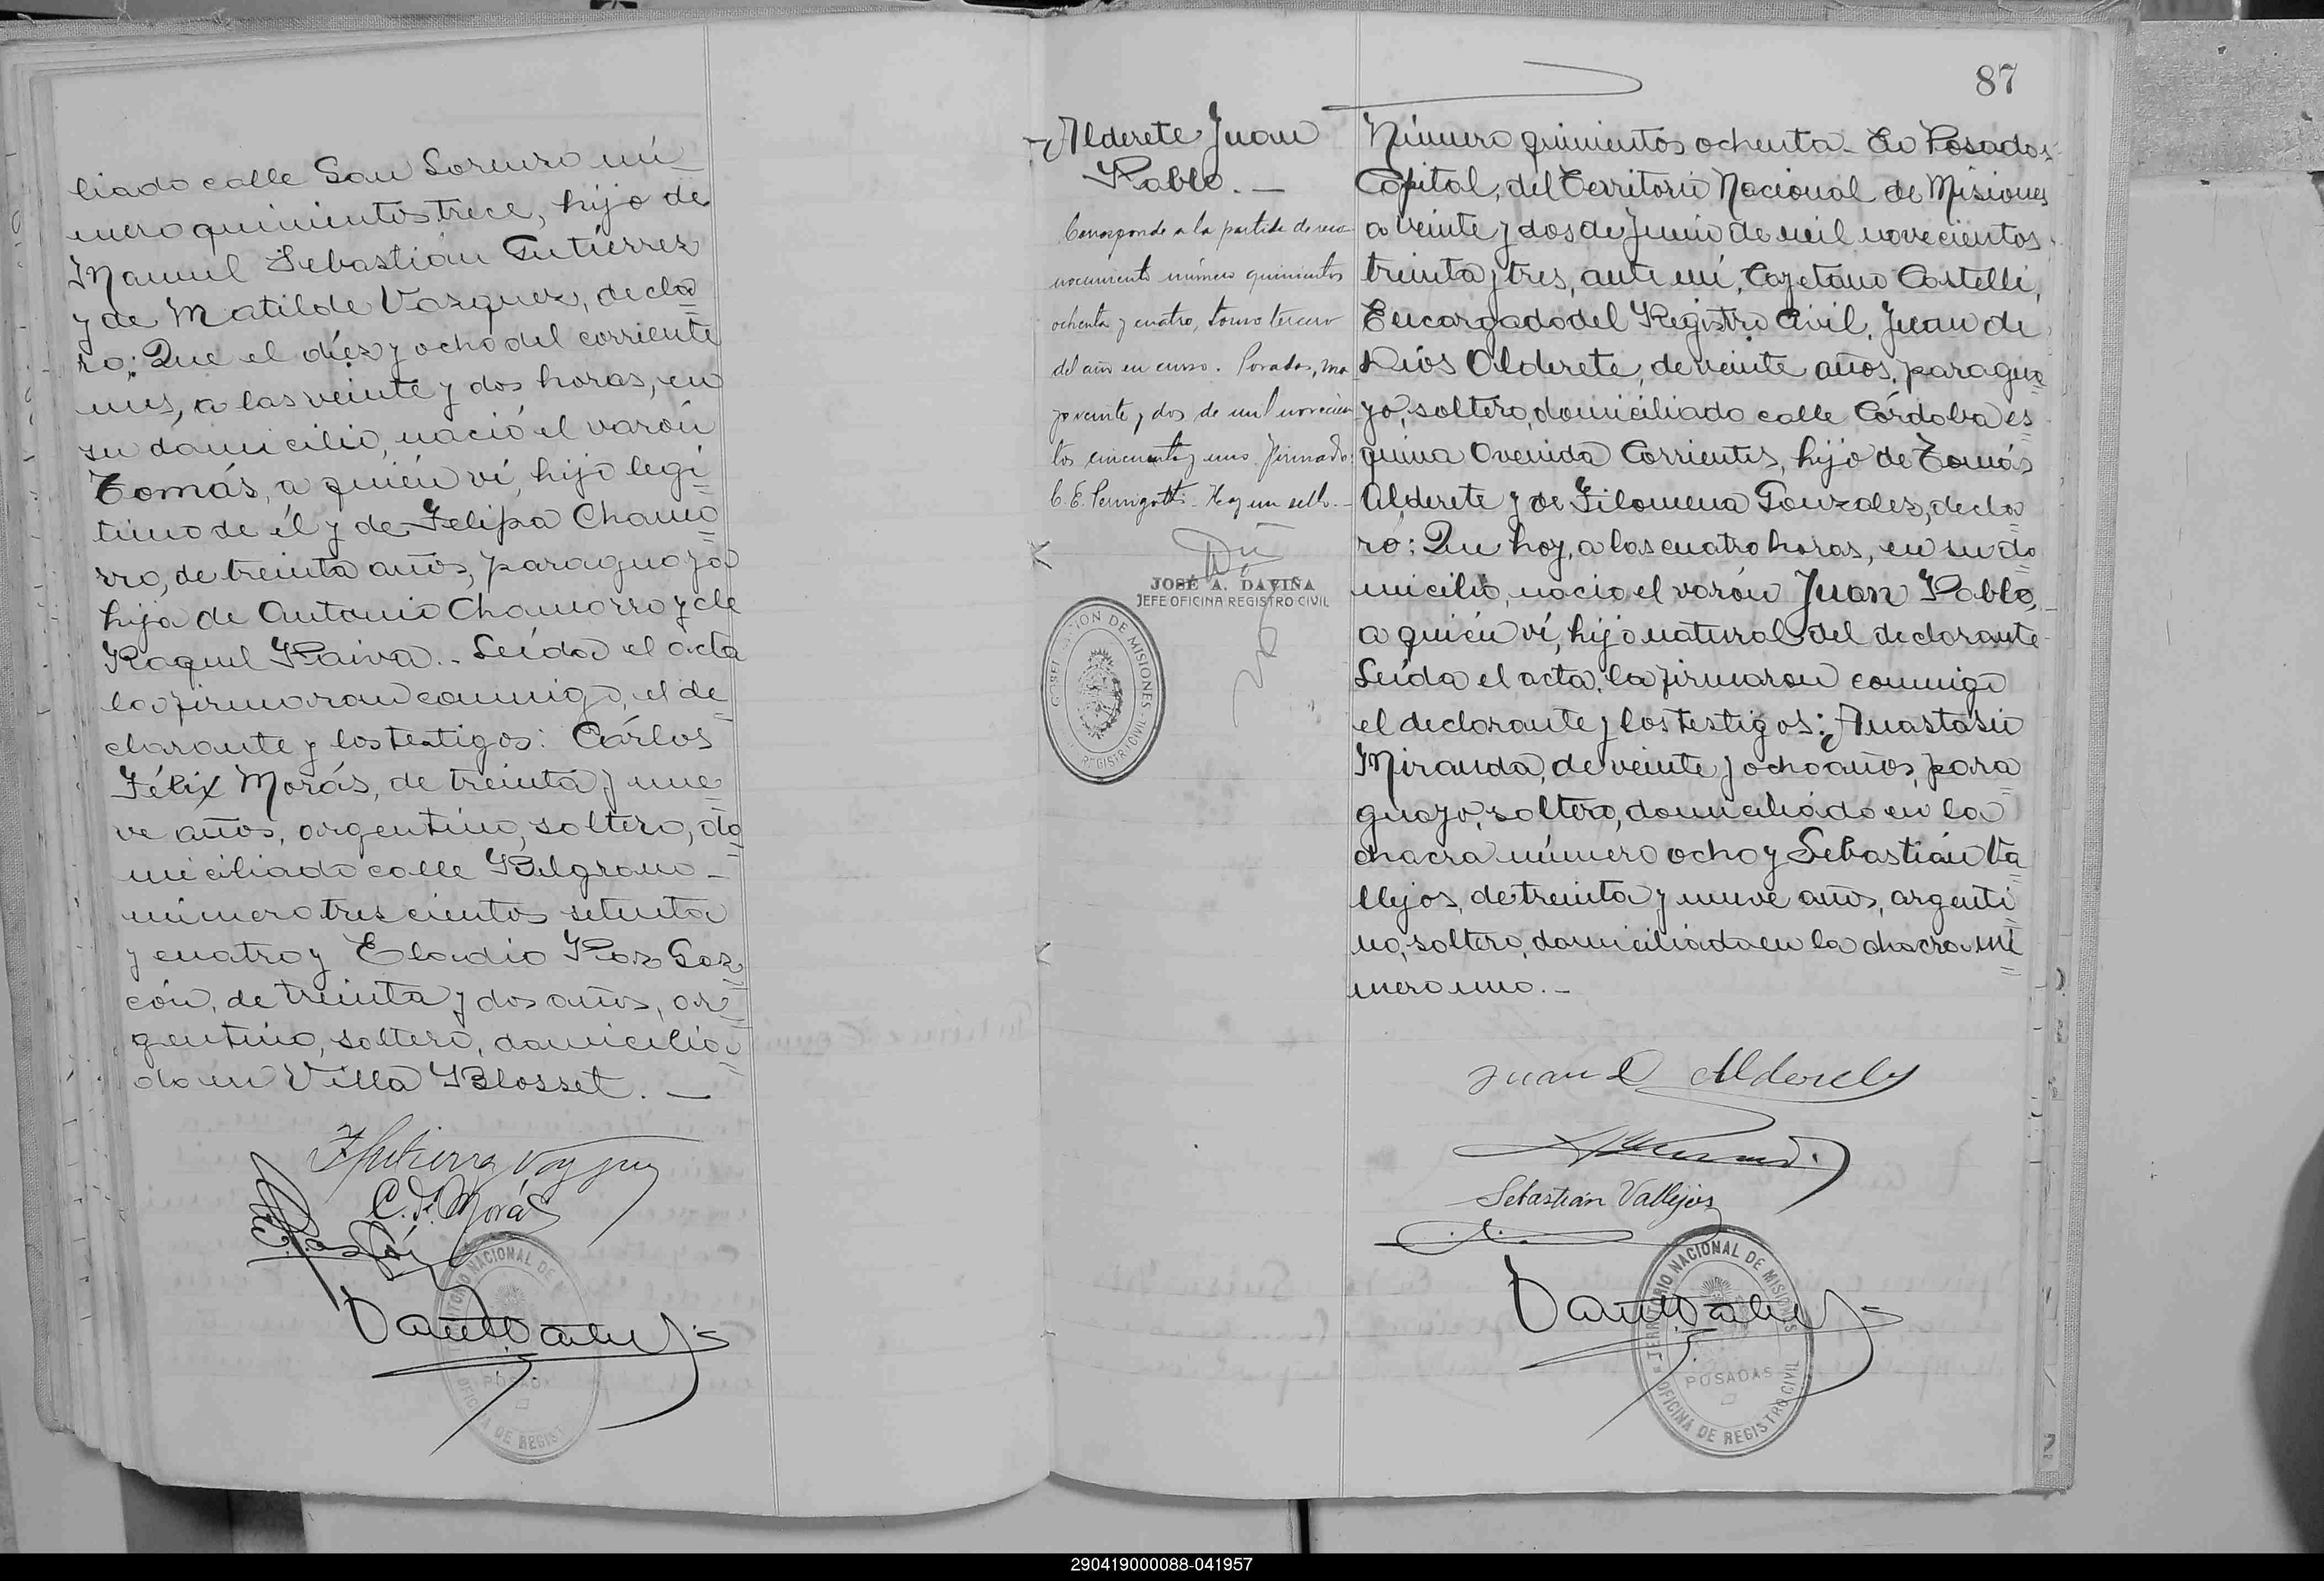 liado calle San Lorenzo nú
mero quinientos trece, hijo de
Manuel Sebastián Gutiérrez
y de Matilde Vazquez, decla
ro: Que el diez y ocho del corriente
mes, a las veinte y dos horas, en
su domicilio, nació el varón
Tomás, a quién ví, hijo legí
timo de él y de Felipa Chamo
rro, de treinta años, paraguaya
hija de Antonio Chamorro y de
Raquel Paiva.- Leída el acta
la firmaron conmigo, el de
clarante y los testigos: Cárlos
Félix Morás, de treinta y nue
ve años, argentino, soltero, do
miciliado calle Belgrano -
número trescientos setenta
y cuatro y Eladio Paz Gaz
cón, de treinta y dos años, ar
gentino, soltero, domicilia
do en Villa Blosset. -
C. F. Morás
TERRITORIO NACIONAL DE M
POSADAS
OFICINA DE REGIST
87
Alderete Juan
Pablo. -
Corresponde a la partida de reco
nocimiento número quinientos
ochenta y cuatro, tomo tercero
del año en curso. Posadas, ma
yo veinte y dos de mil novecien
tos cincuenta y uno. Firmado:
C. E. Pernigotti. Hay un sello. -
JOSÉ A. DAVIÑA
JEFE OFICINA REGISTRO CIVIL
GOBERNACION DE MISIONES
REGISTRO CIVIL
Número quinientos ochenta - En Posadas
Capital, del Territorio Nacional de Misiones
a veinte y dos de Junio de mil novecientos
treinta y tres, ante mí, Cayetano Castelli,
Encargado del Registro Civil, Juan de
Dios Alderete, de veinte años, paragua
yo, soltero, domiciliado calle Córdoba es
quina Avenida Corrientes, hijo de Tomás
Alderete y de Filomena Gonzalez, decla
ró: Que hoy, a las cuatro horas, en su do
micilio, nacio el varón Juan Pablo,
a quién ví, hijo natural del declarante
Leída el acta, la firmaron conmigo
el declarante y los testigos: Anastasio
Miranda, de veinte y ocho años, para
guayo, soltero, domiciliado en la
chacra número ocho y Sebastián Va
llejos, de treinta y nueve años, argenti
no, soltero, domiciliado en la chacra nú
mero uno. -
Juan D Alderete
Sebastián Vallejos
TERRITORIO NACIONAL DE MISIONES
POSADAS
OFICINA DE REGISTRO CIVIL
290419000088-041957